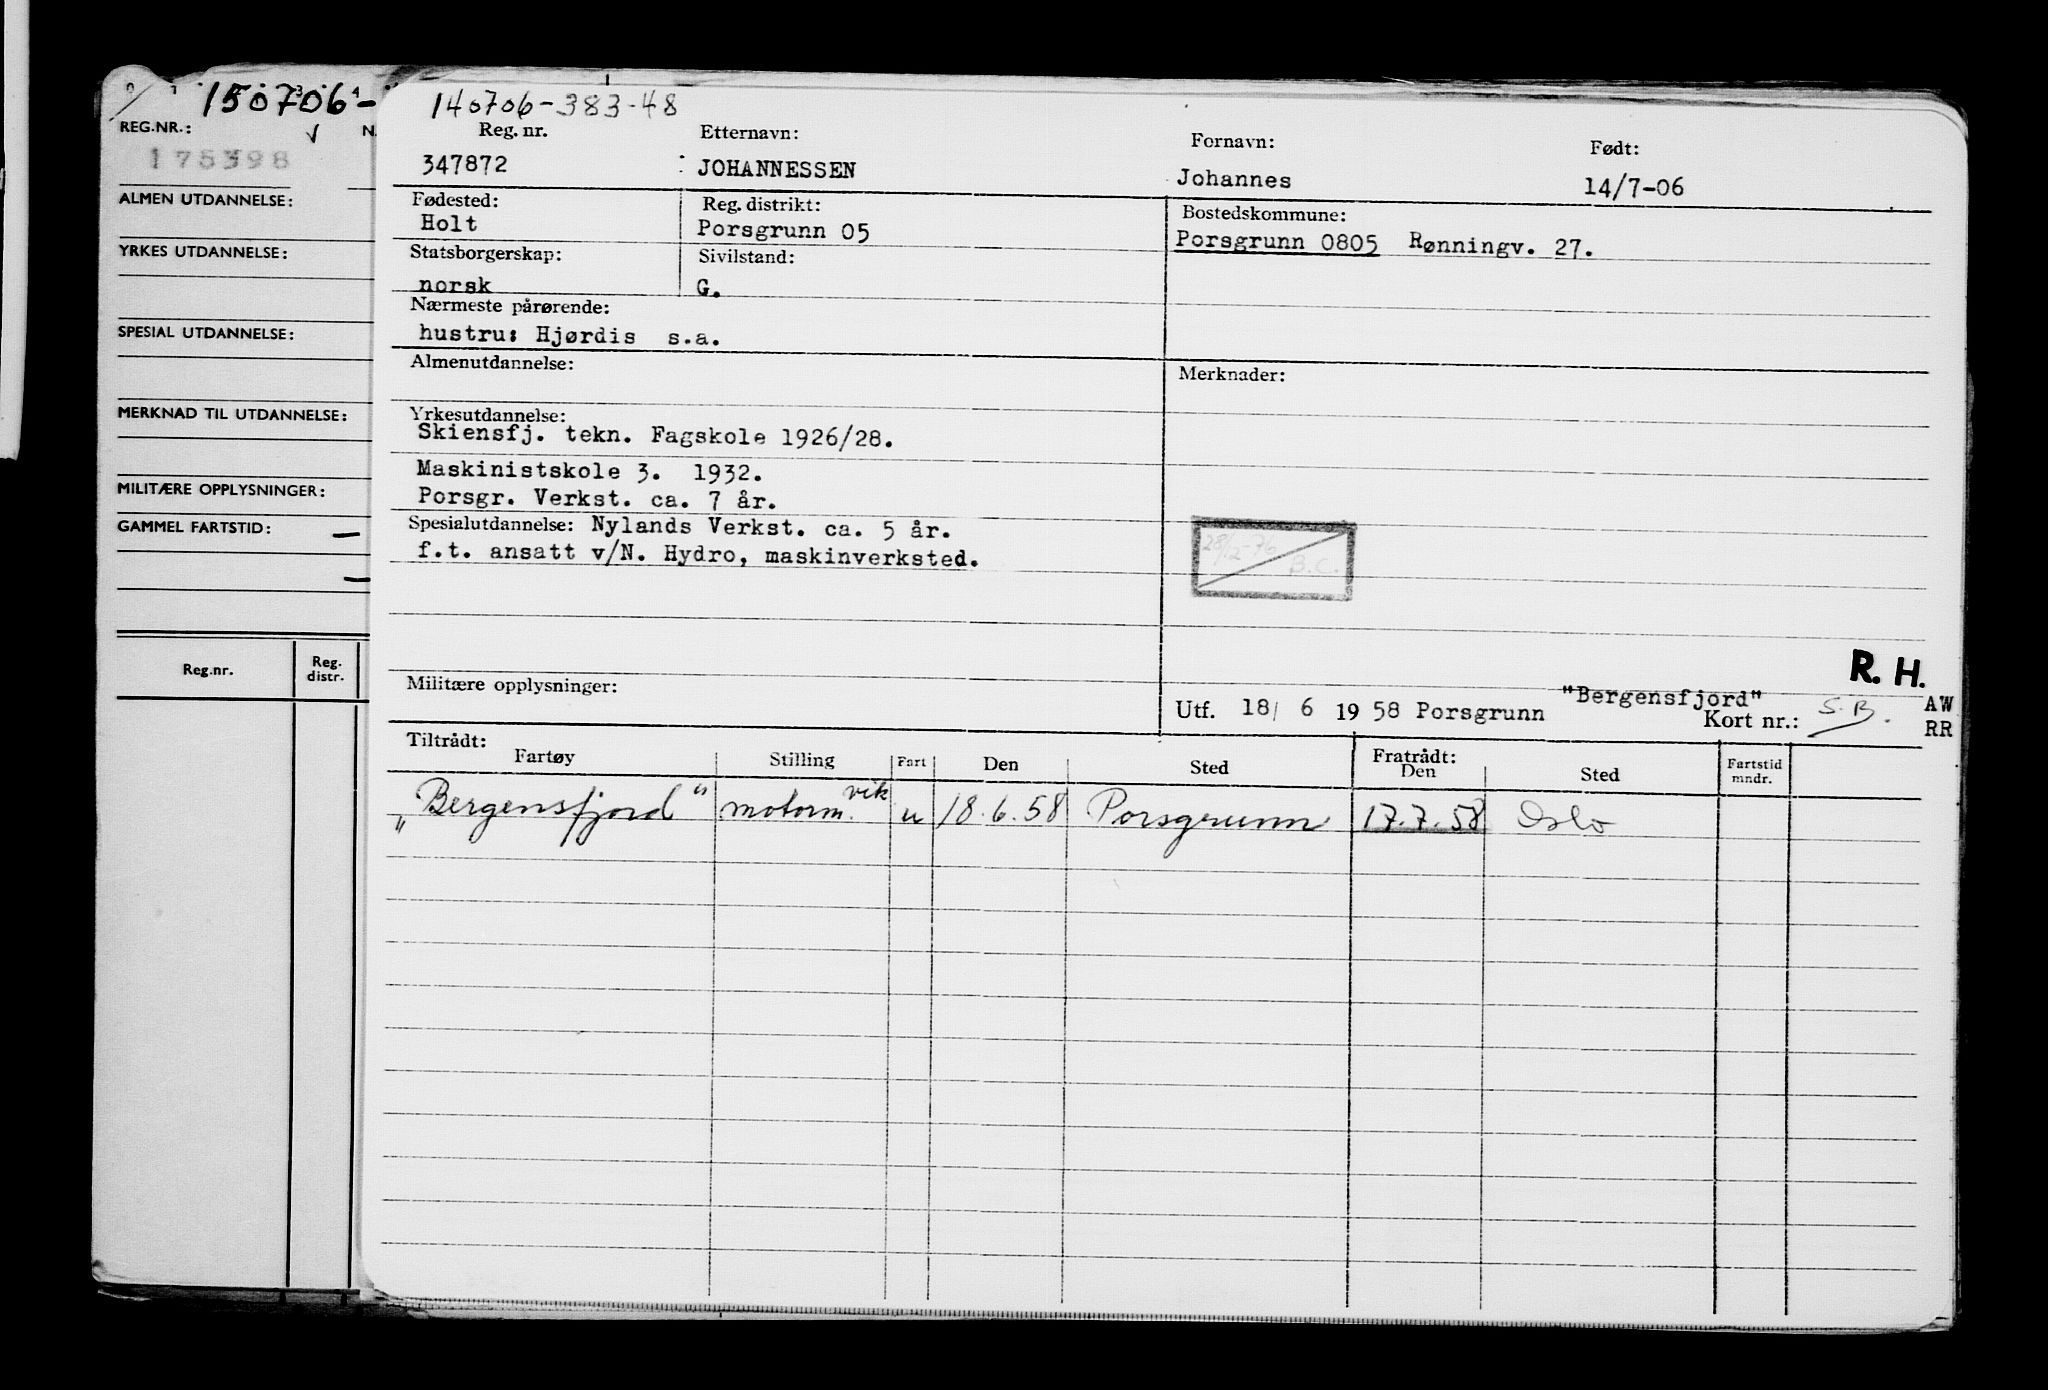 150706-
REG.NR.: N.
175398
ALMEN UTDANNELSE:
YRKES UTDANNELSE:
SPESIAL UTDANNELSE:
MERKNAD TIL UTDANNELSE:
MILITÆRE OPPLYSNINGER:
GAMMEL FARTSTID:
Reg.nr. Reg. distr.
140706-383-48
Reg. nr. Etternavn: Fornavn: Født:
347872 JOHANNESSEN Johannes 14/7-06
Fødested: Reg. distrikt: Bostedskommune:
Holt Porsgrunn 05 Porsgrunn 0805 Rønningv. 27.
Statsborgerskap: Sivilstand:
norsk G.
Nærmeste pårørende:
hustru: Hjørdis s.a.
Almenutdannelse: Merknader:
Yrkesutdannelse:
Skiensfj. tekn. Fagskole 1926/28.
Maskinistskole 3. 1932.
Porsgr. Verkst. ca. 7 år.
Spesialutdannelse: Nylands Verkst. ca. 5 år.
f.t. ansatt v/N. Hydro, maskinverksted.
28/12-76 B.C.
R. H.
Militære opplysninger:
"Bergensfjord"
Utf. 18/ 6 19 58 Porsgrunn Kort nr.: S.B. AW
RR
Tiltrådt: Fratrådt:
Fartøy Stilling Fart Den Sted Den Sted Fartstid mndr.
„Bergensfjord" motorm. vik u 18.6.58 Porsgrunn 17.7.58 Oslo